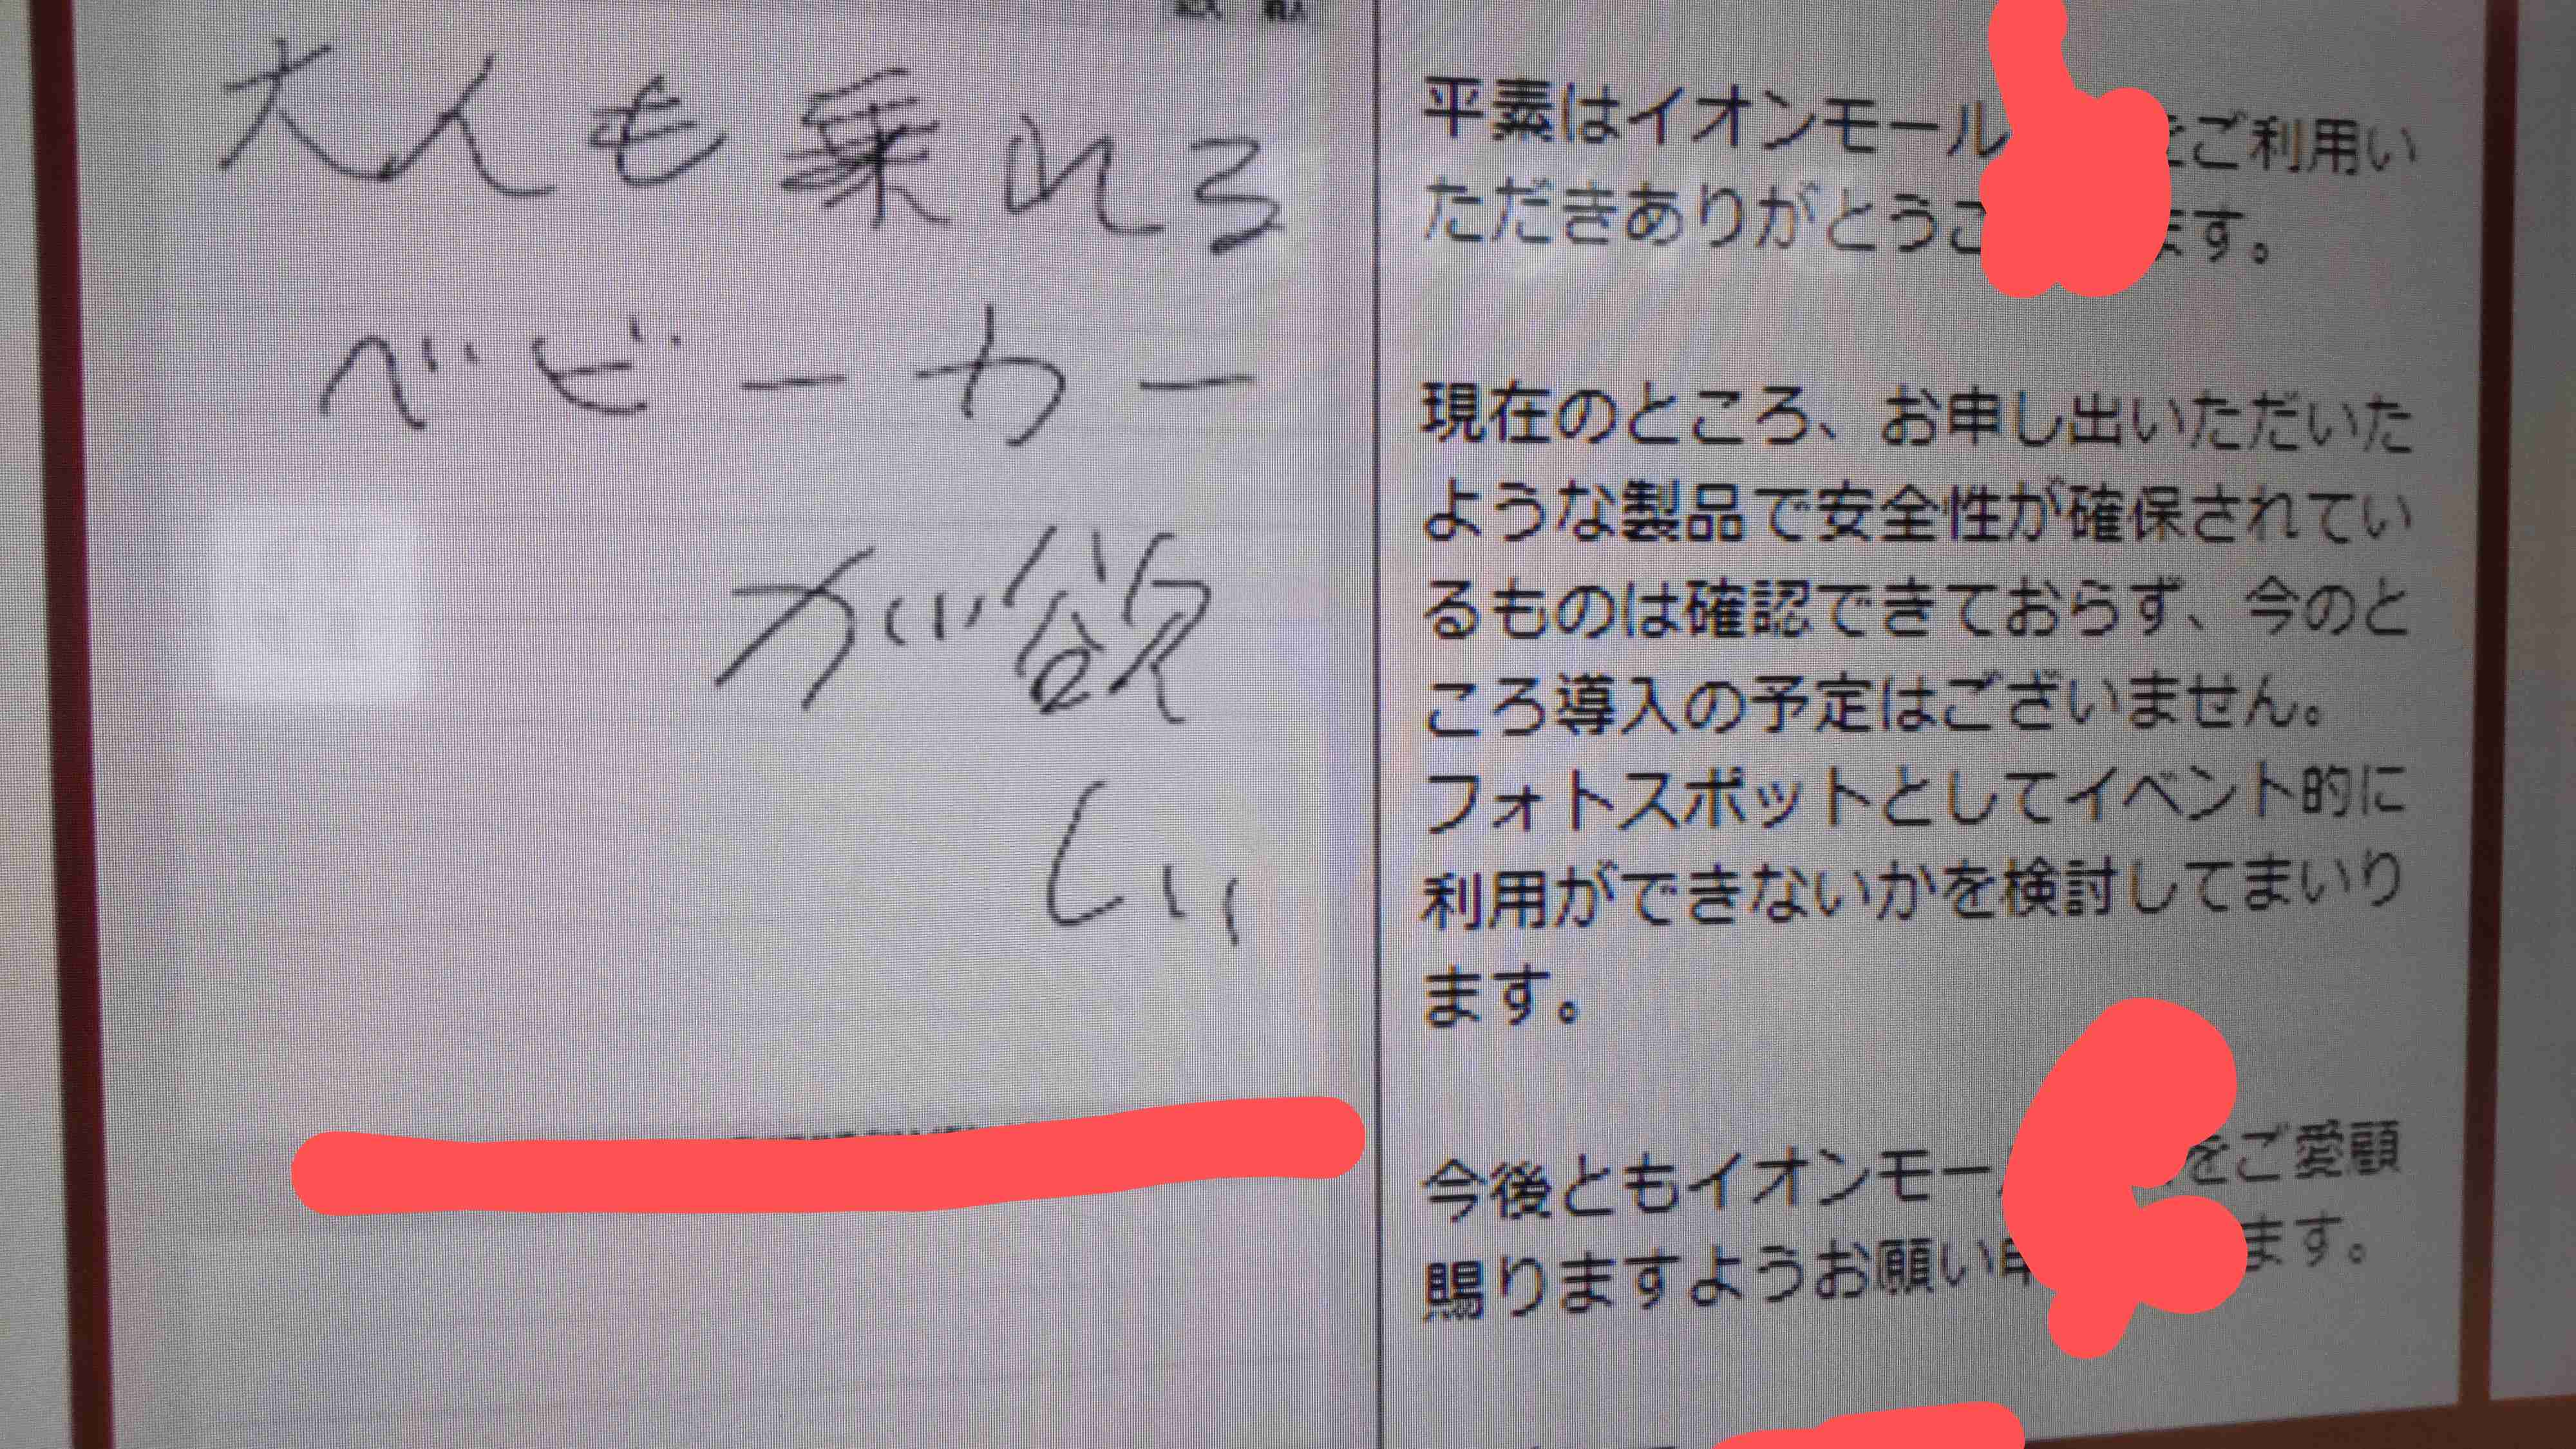 大人も乗れる
ベビーカー
が欲
しい
平素はイオンモール をご利用い
ただきありがとうご ます。
現在のところ、お申し出いただいた
ような製品で安全性が確保されてい
るものは確認できておらず、今のと
ころ導入の予定はございません。
フォトスポットとしてイベント的に
利用ができないかを検討してまいり
ます。
今後ともイオンモール をご愛顧
賜りますようお願い申 ます。